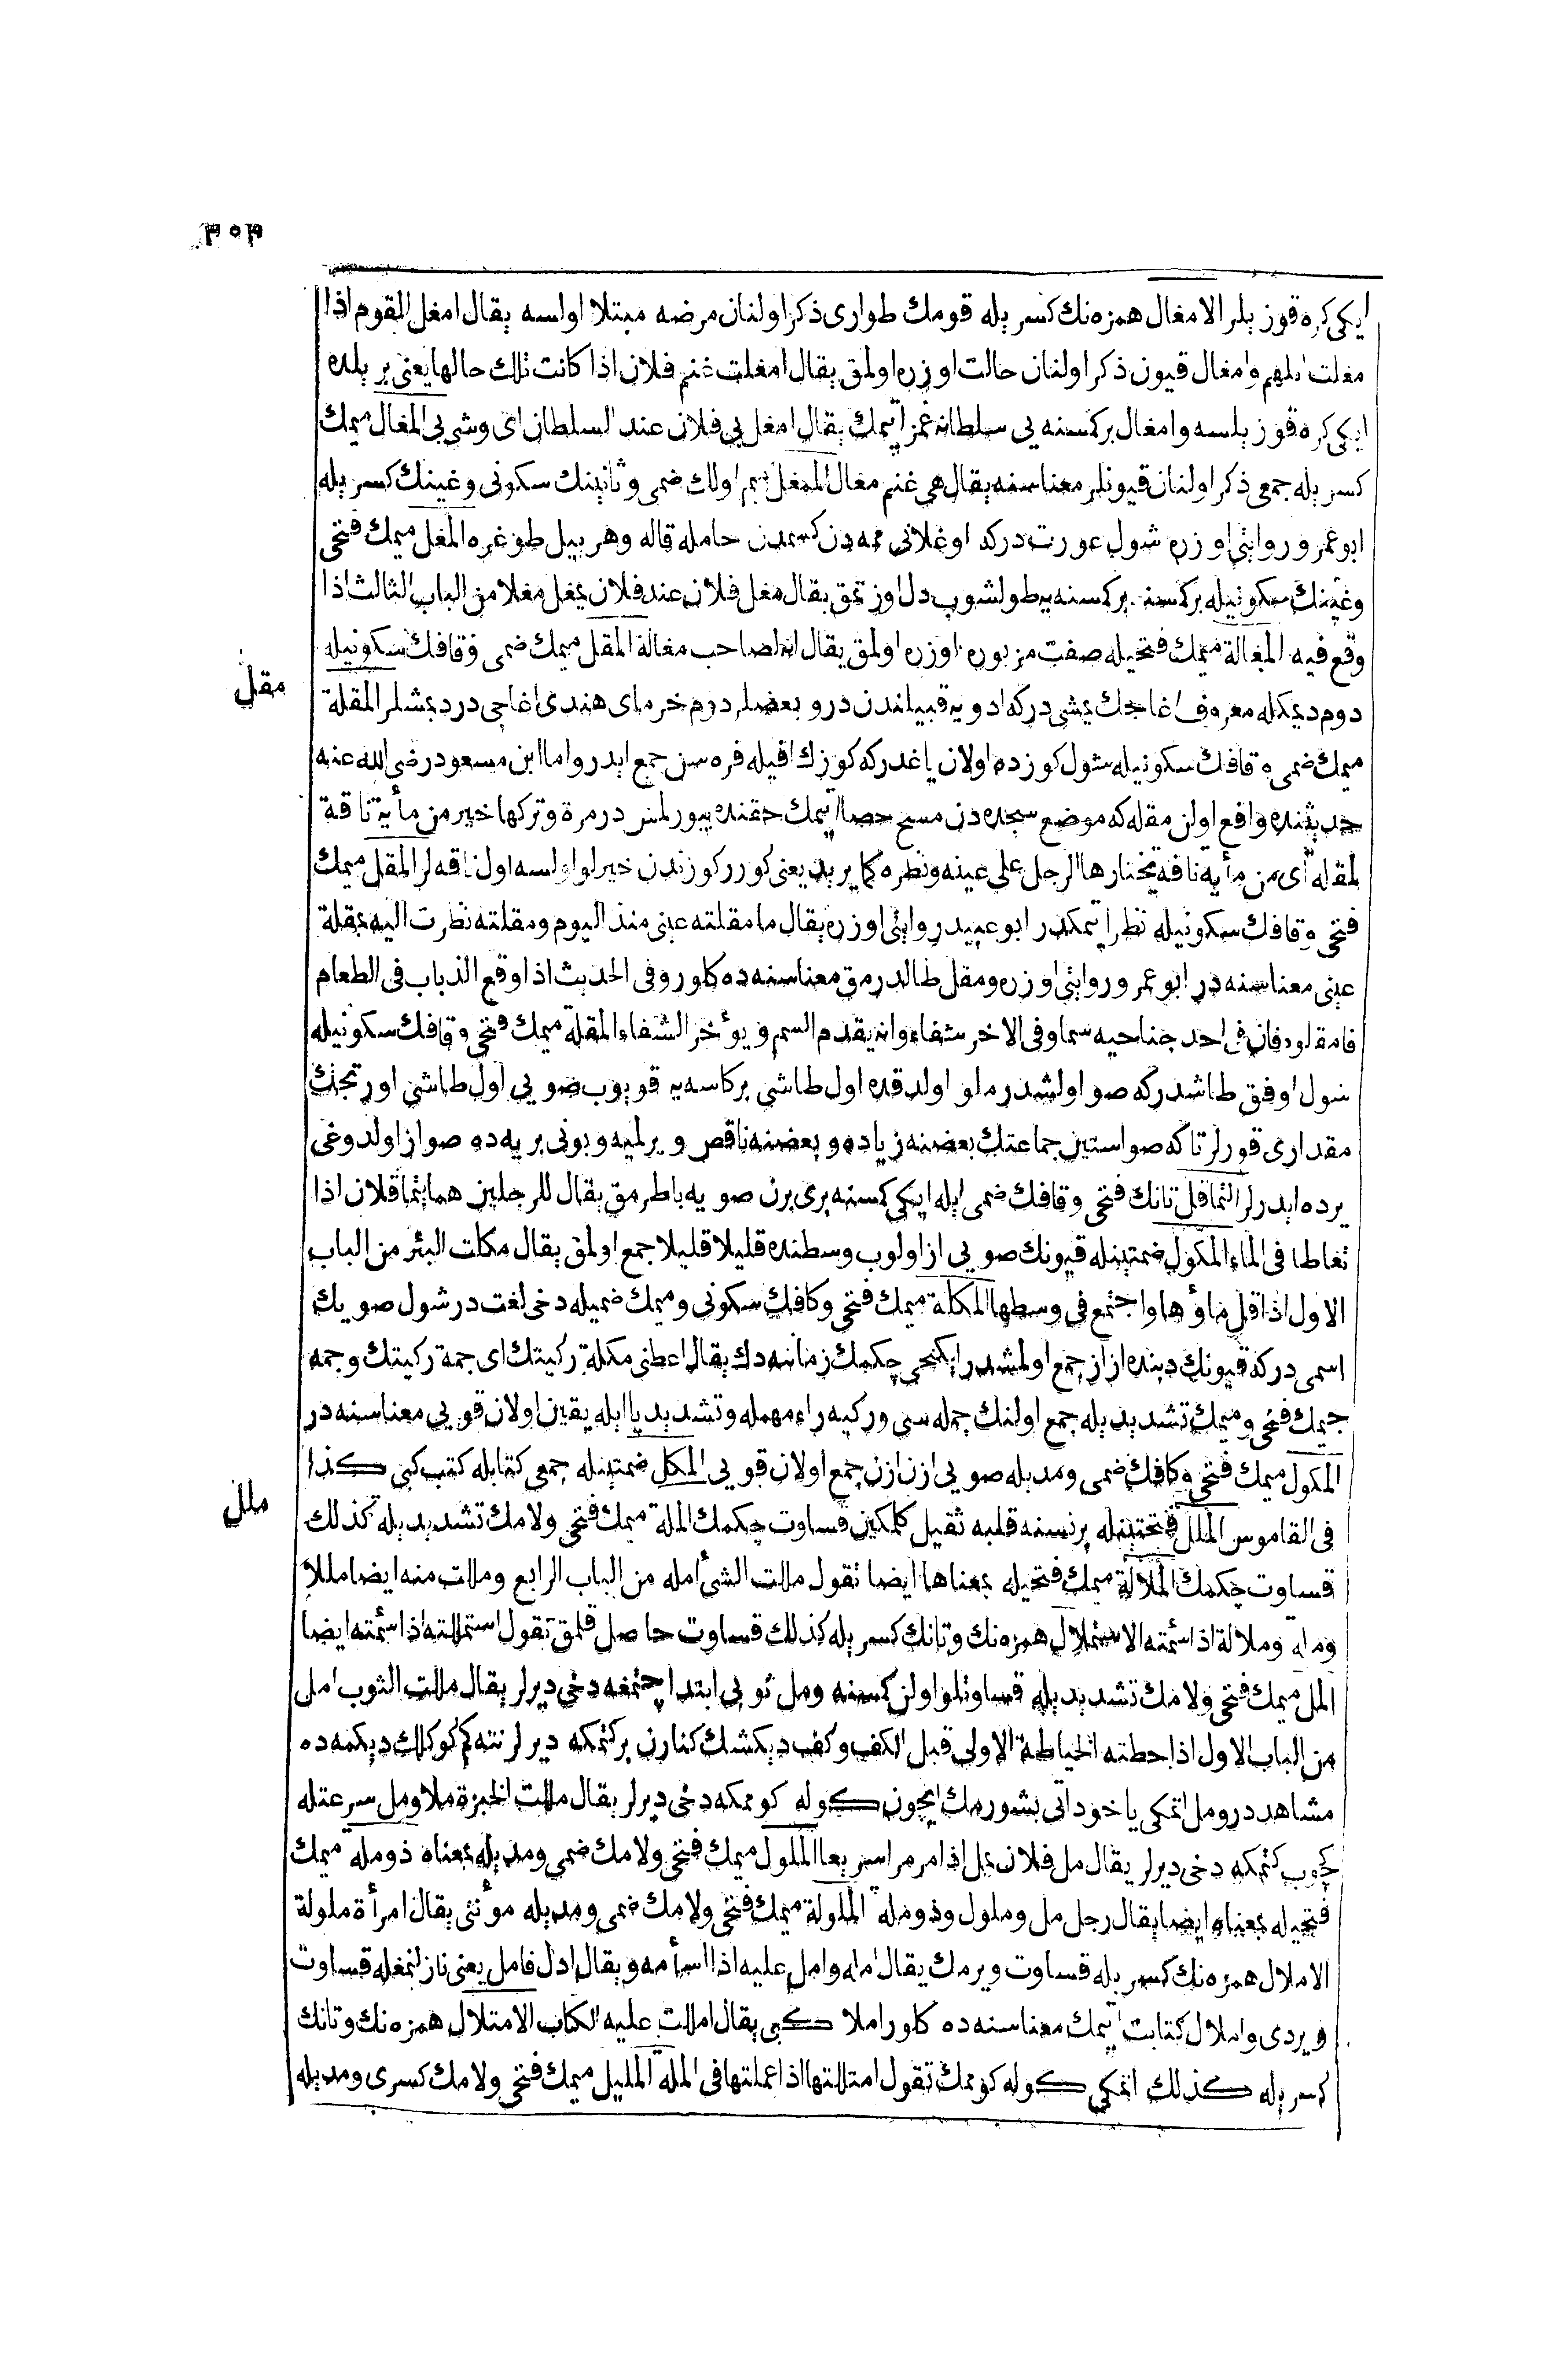 ٣٠٣
ايكى كره قوزيلر الامغال همزه نك كسريله قومك طوارى ذكر اولنان مرضه مبتلا اولسه يقال امغل القوم اذا
مغلت ابلهم وامغال قيون ذكر اولنان حالت اوزره اولمق يقال امغلت غنم فلان اذا كانت تلك حالها يعنى بر يلده
ايكى كره قوزيلسه وامغال بر كمسنه يى سلطانه غمز ايتمك يقال امغل بى فلان عند السلطان اى وشى بى المغال ميمك
كسريله جمعى ذكر اولنان قيونلر معناسنه يقال هى غنم مغال المغل ميم اولك ضمى وثانينك سكونى وغينك كسريله
ابو عمرو روايتى اوزره شول عورتدركه اوغلانى ممه دن كسمدن حامله قاله وهر ييل طوغره المغل ميمك فتحى
وغينك سكونيله بر كمسنه بر كمسنه يه طولشوب دل اوزتمق يقال مغل فلان عند فلان يمغل مغلا من الباب الثالث اذا
وقع فيه المغالة ميمك فتحيله صفت مزبوره اوزره اولمق يقال انه لصاحب مغالة المقل ميمك ضمى وقافك سكونيله
مقل
دوم ديمكله معروف اغاجك يمشى دركه ادويه قبيلندن در وبعضلر دوم خرماى هندى اغاجى در ديمشلر المقلة
ميمك ضمى وقافك سكونيله شول كوزده اولان ياغدركه كوزك اقيله قره سن جمع ايدر واما ابن مسعود رضى الله عنه
حديثنده واقع اولن مقله كه موضع سجده دن مسح حصا ايتمك حقنده بيورلمش در مرة وتركها خير من مأية ناقة
لمقله اى من مأية ناقه يختارها الرجل على عينه ونظره كما يريد يعنى كورر كوزندن خيرلو اولسه اول ناقه لر المقل ميمك
فتحى وقافك سكونيله نظر ايتمكدر ابو عبيد روايتى اوزره يقال ما مقلته عينى منذ اليوم ومقلته نظرت اليه بمقلة
عينى معناسنه در ابو عمرو روايتى اوزره ومقل طالدرمق معناسنه ده كلور وفى الحديث اذا وقع الذباب فى الطعام
فامقلوه فان فى احد جناحيه سما وفى الاخر شفاء وانه يقدم السم ويؤخر الشفاء المقلة ميمك فتحى وقافك سكونيله
شول اوفق طاشدركه صو اولشدرملو اولدقده اول طاشى بر كاسه يه قويوب صويى اول طاشى اورتجك
مقدارى قورلر تاكه صو استين جماعتك بعضنه زياده وبعضنه ناقص ويرلميه وبونى بريه ده صو از اولدوغى
يرده ايدرلر التماقل تانك فتحى وقافك ضمى ايله ايكى كمسنه برى برن صويه باطرمق يقال للرجلين هما يتماقلان اذا
تغاطا فى الماء المكول ضمتينله قيونك صويى از اولوب وسطنده قليلا قليلا جمع اولمق يقال مكلت البئر من الباب
الاول اذا قل ماؤها واجتمع فى وسطها المكلة ميمك فتحى وكافك سكونى وميمك ضميله دخى لغت در شول صويك
اسمى دركه قيونك ديبنده از از جمع اولمشدر ايكنجى چكمك زماننه دك يقال اعطنى مكلة ركيتك اى جمة ركيتك وجمه
جيمك فتحى وميمك تشديديله جمع اولنك جمله سى وركيه راء مهمله وتشديد يا ايله يقين اولان قويى معناسنه در
المكول ميمك فتحى وكافك ضمى ومديله صويى ازن ازن جمع اولان قويى المكل ضمتينله جمعى كتابله كتب كبى كذا
فى القاموس الملل فتحتينله بر نسنه قلبه ثقيل كلمكين قساوت چكمك المله ميمك فتحى ولامك تشديديله كذلك
ملل
قساوت چكمك الملالة ميمك فتحيله بمعناها ايضا تقول مللت الشئ امله من الباب الرابع ومللت منه ايضا مللا
ومله وملالة اذا سئمته الاستملال همزه نك وتانك كسريله كذلك قساوت حاصل قلمق تقول استمللته اذا سئمته ايضا
المل ميمك فتحى ولامك تشديديله قساوتلو اولن كمسنه ومل ثوبى ابتدا چتمغه دخى ديرلر يقال مللت الثوب امل
من الباب الاول اذا خطته الخياطة الاولى قبل الكف وكف ديكشك كنارن بركتمكه ديرلر نته كم كوكلك ديكمه ده
مشاهددر ومل اتمكى ياخود اتى بشورمك ايچون كوله كوممكه دخى ديرلر يقال مللت الخبزة ملا ومل سرعتله
كچوب كتمكه دخى ديرلر يقال مل فلان يمل اذا مر مرا سريعا الملول ميمك فتحى ولامك ضمى ومديله بمعناه ذومله ميمك
فتحيله بمعناه ايضا يقال رجل مل وملول وذومله الملولة ميمك فتحى ولامك ضمى ومديله مؤنثى يقال امرأة ملولة
الاملال همزه نك كسريله قساوت ويرمك يقال امله وامل عليه اذا اسأمه ويقال ادل فامل يعنى نازلنمغله قساوت
ويردى واملال كتابت ايتمك معناسنه ده كلور املا كبى يقال امللت عليه الكتاب الامتلال همزه نك وتانك
كسريله كذلك اتمكى كوله كوممك تقول امتللتها اذا عملتها فى المله المليل ميمك فتحى ولامك كسرى ومديله